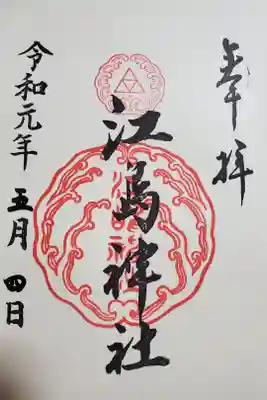 奉拝
江島神社
令和元年
五月四日